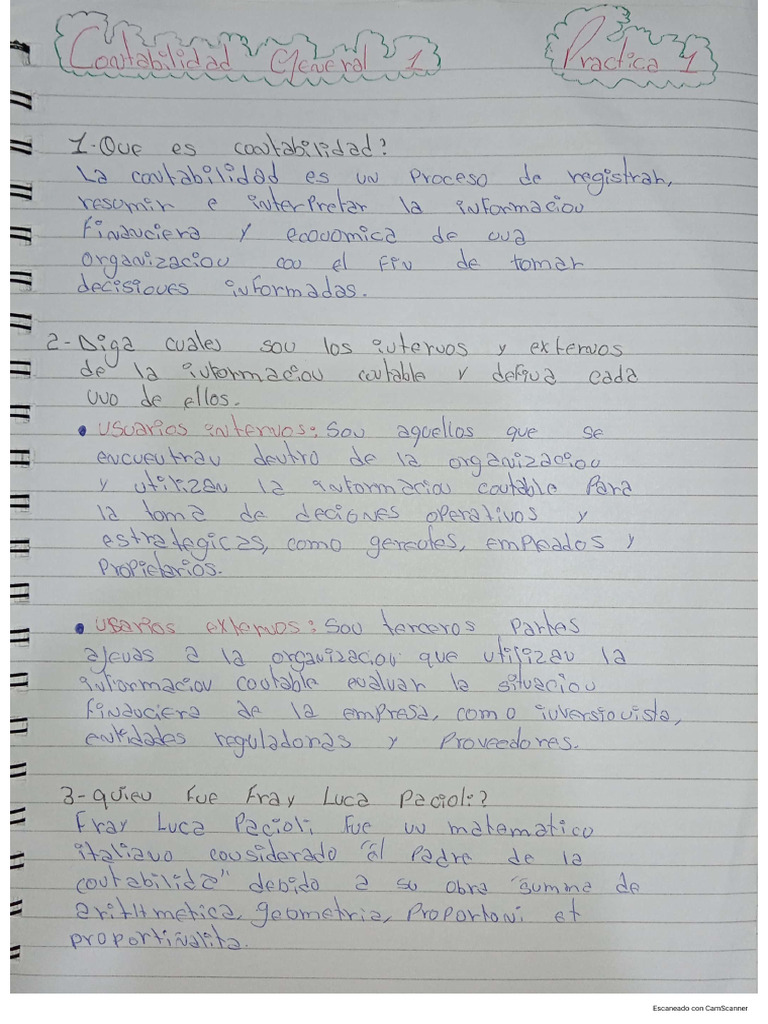 Contabilidad General 1
Practica 1
1-Que es contabilidad?
La contabilidad es un proceso de registrar,
resumir e interpretar la informacion
financiera y economica de una
organizacion con el fin de tomar
decisiones informadas.
2-Diga cuales son los internos y externos
de la informacion contable y defina cada
uno de ellos.
• Usuarios internos: Son aquellos que se
encuentran dentro de la organizacion
y utilizan la informacion contable Para
la toma de deciones operativos y
estrategicas, como gerentes, empleados y
Propietarios.
• Usarios externos: Son terceros Partes
ajenas a la organizacion que utilizan la
informacion contable evaluar la situacion
financiera de la empresa, como inversionista,
entidades reguladoras y Proveedores.
3-quien Fue Fray Luca Pacioli?
Fray Luca Pacioli Fue un matematico
italiano considerado "el Padre de la
contabilida" debido a su obra "summa de
arithmetica, geometria, Proportoni et
proportinalita.
Escaneado con CamScanner